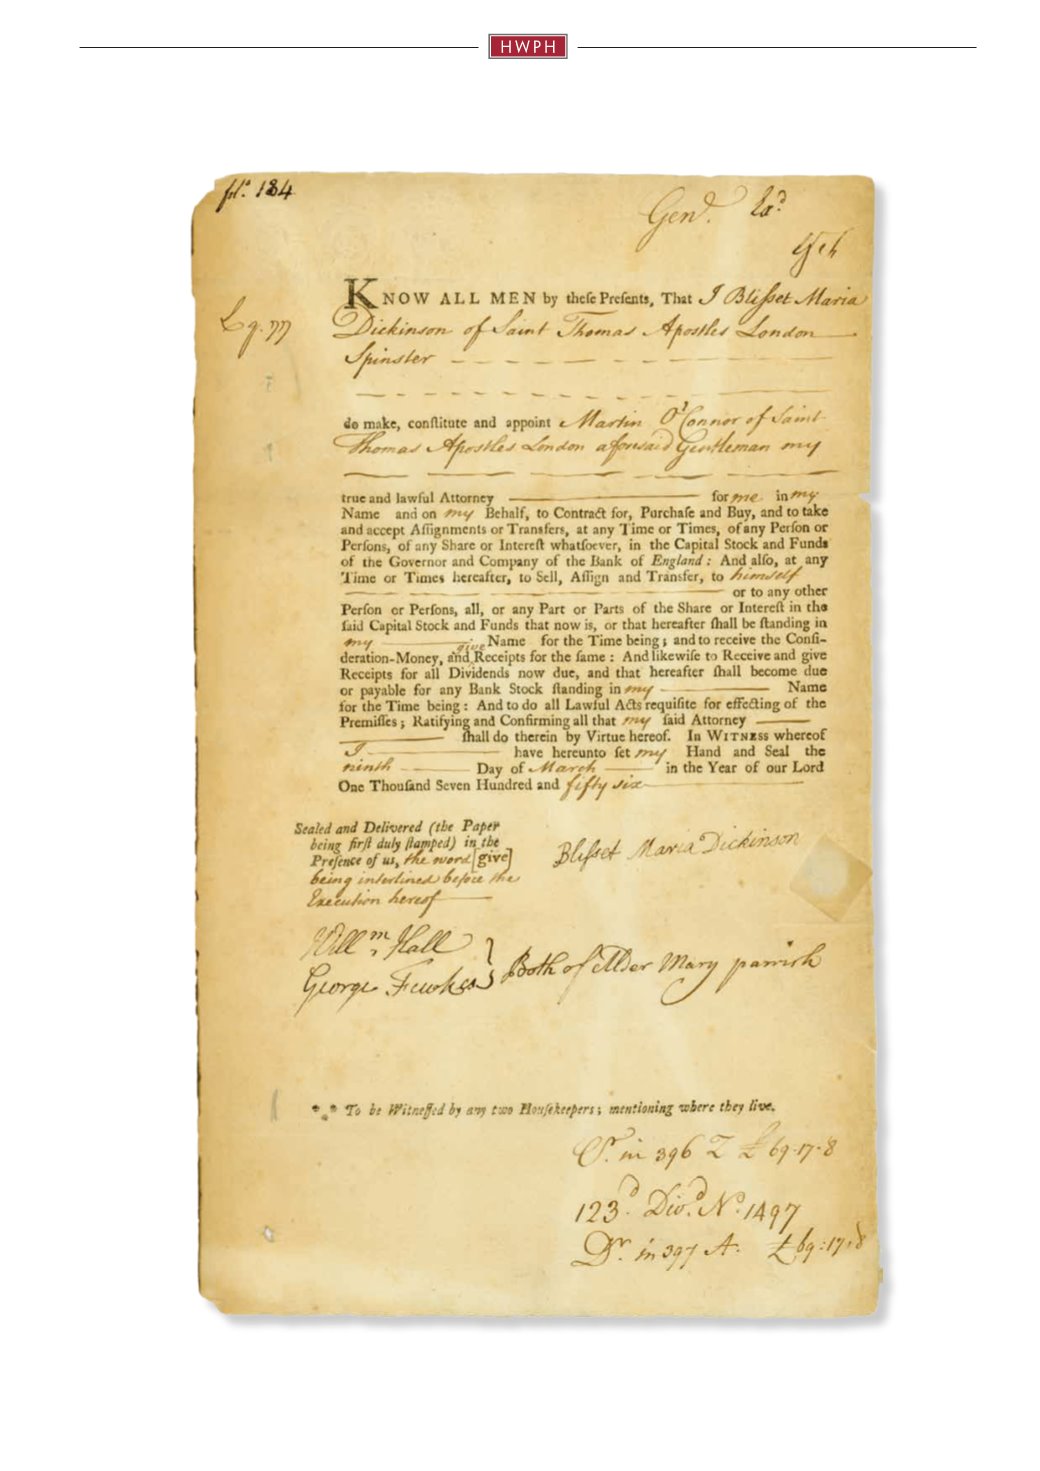 HWPH
fol. 184
Gen.
Lg. 77
KNOW ALL MEN by theſe Preſents, That I Bliſset Maria
Dickinson of Saint Thomas Apostles London
Spinster
do make, conſtitute and appoint Martin O'Connor of Saint
Thomas Apostles London aforesaid Gentleman my
true and lawful Attorney for me in my
Name and on my Behalf, to Contract for, Purchaſe and Buy, and to take
and accept Aſſignments or Transfers, at any Time or Times, of any Perſon or
Perſons, of any Share or Intereſt whatſoever, in the Capital Stock and Funds
of the Governor and Company of the Bank of England: And alſo, at any
Time or Times hereafter, to Sell, Aſſign and Transfer, to himself
or to any other
Perſon or Perſons, all, or any Part or Parts of the Share or Intereſt in the
ſaid Capital Stock and Funds that now is, or that hereafter ſhall be ſtanding in
my Name for the Time being; and to receive the Conſi-
give
deration-Money, and Receipts for the ſame: And likewiſe to Receive and give
Receipts for all Dividends now due, and that hereafter ſhall become due
or payable for any Bank Stock ſtanding in my Name
for the Time being: And to do all Lawful Acts requiſite for effecting of the
Premiſſes; Ratifying and Confirming all that my ſaid Attorney
ſhall do therein by Virtue hereof. In WITNESS whereof
I have hereunto ſet my Hand and Seal the
ninth Day of March in the Year of our Lord
One Thouſand Seven Hundred and fifty six
Sealed and Delivered (the Paper
being firſt duly ſtamped) in the
Preſence of us, the word [give]
being interlined before the
Execution hereof
Bliſset Maria Dickinson
Willm Hall
George Fewkes } Both of Alder Mary parrish
*** To be Witneſſed by any two Houſekeepers; mentioning where they live.
Cr. in 396 T £69.17.8
123d. Divd. No. 1497
Dr. in 397 A. £69:17.8